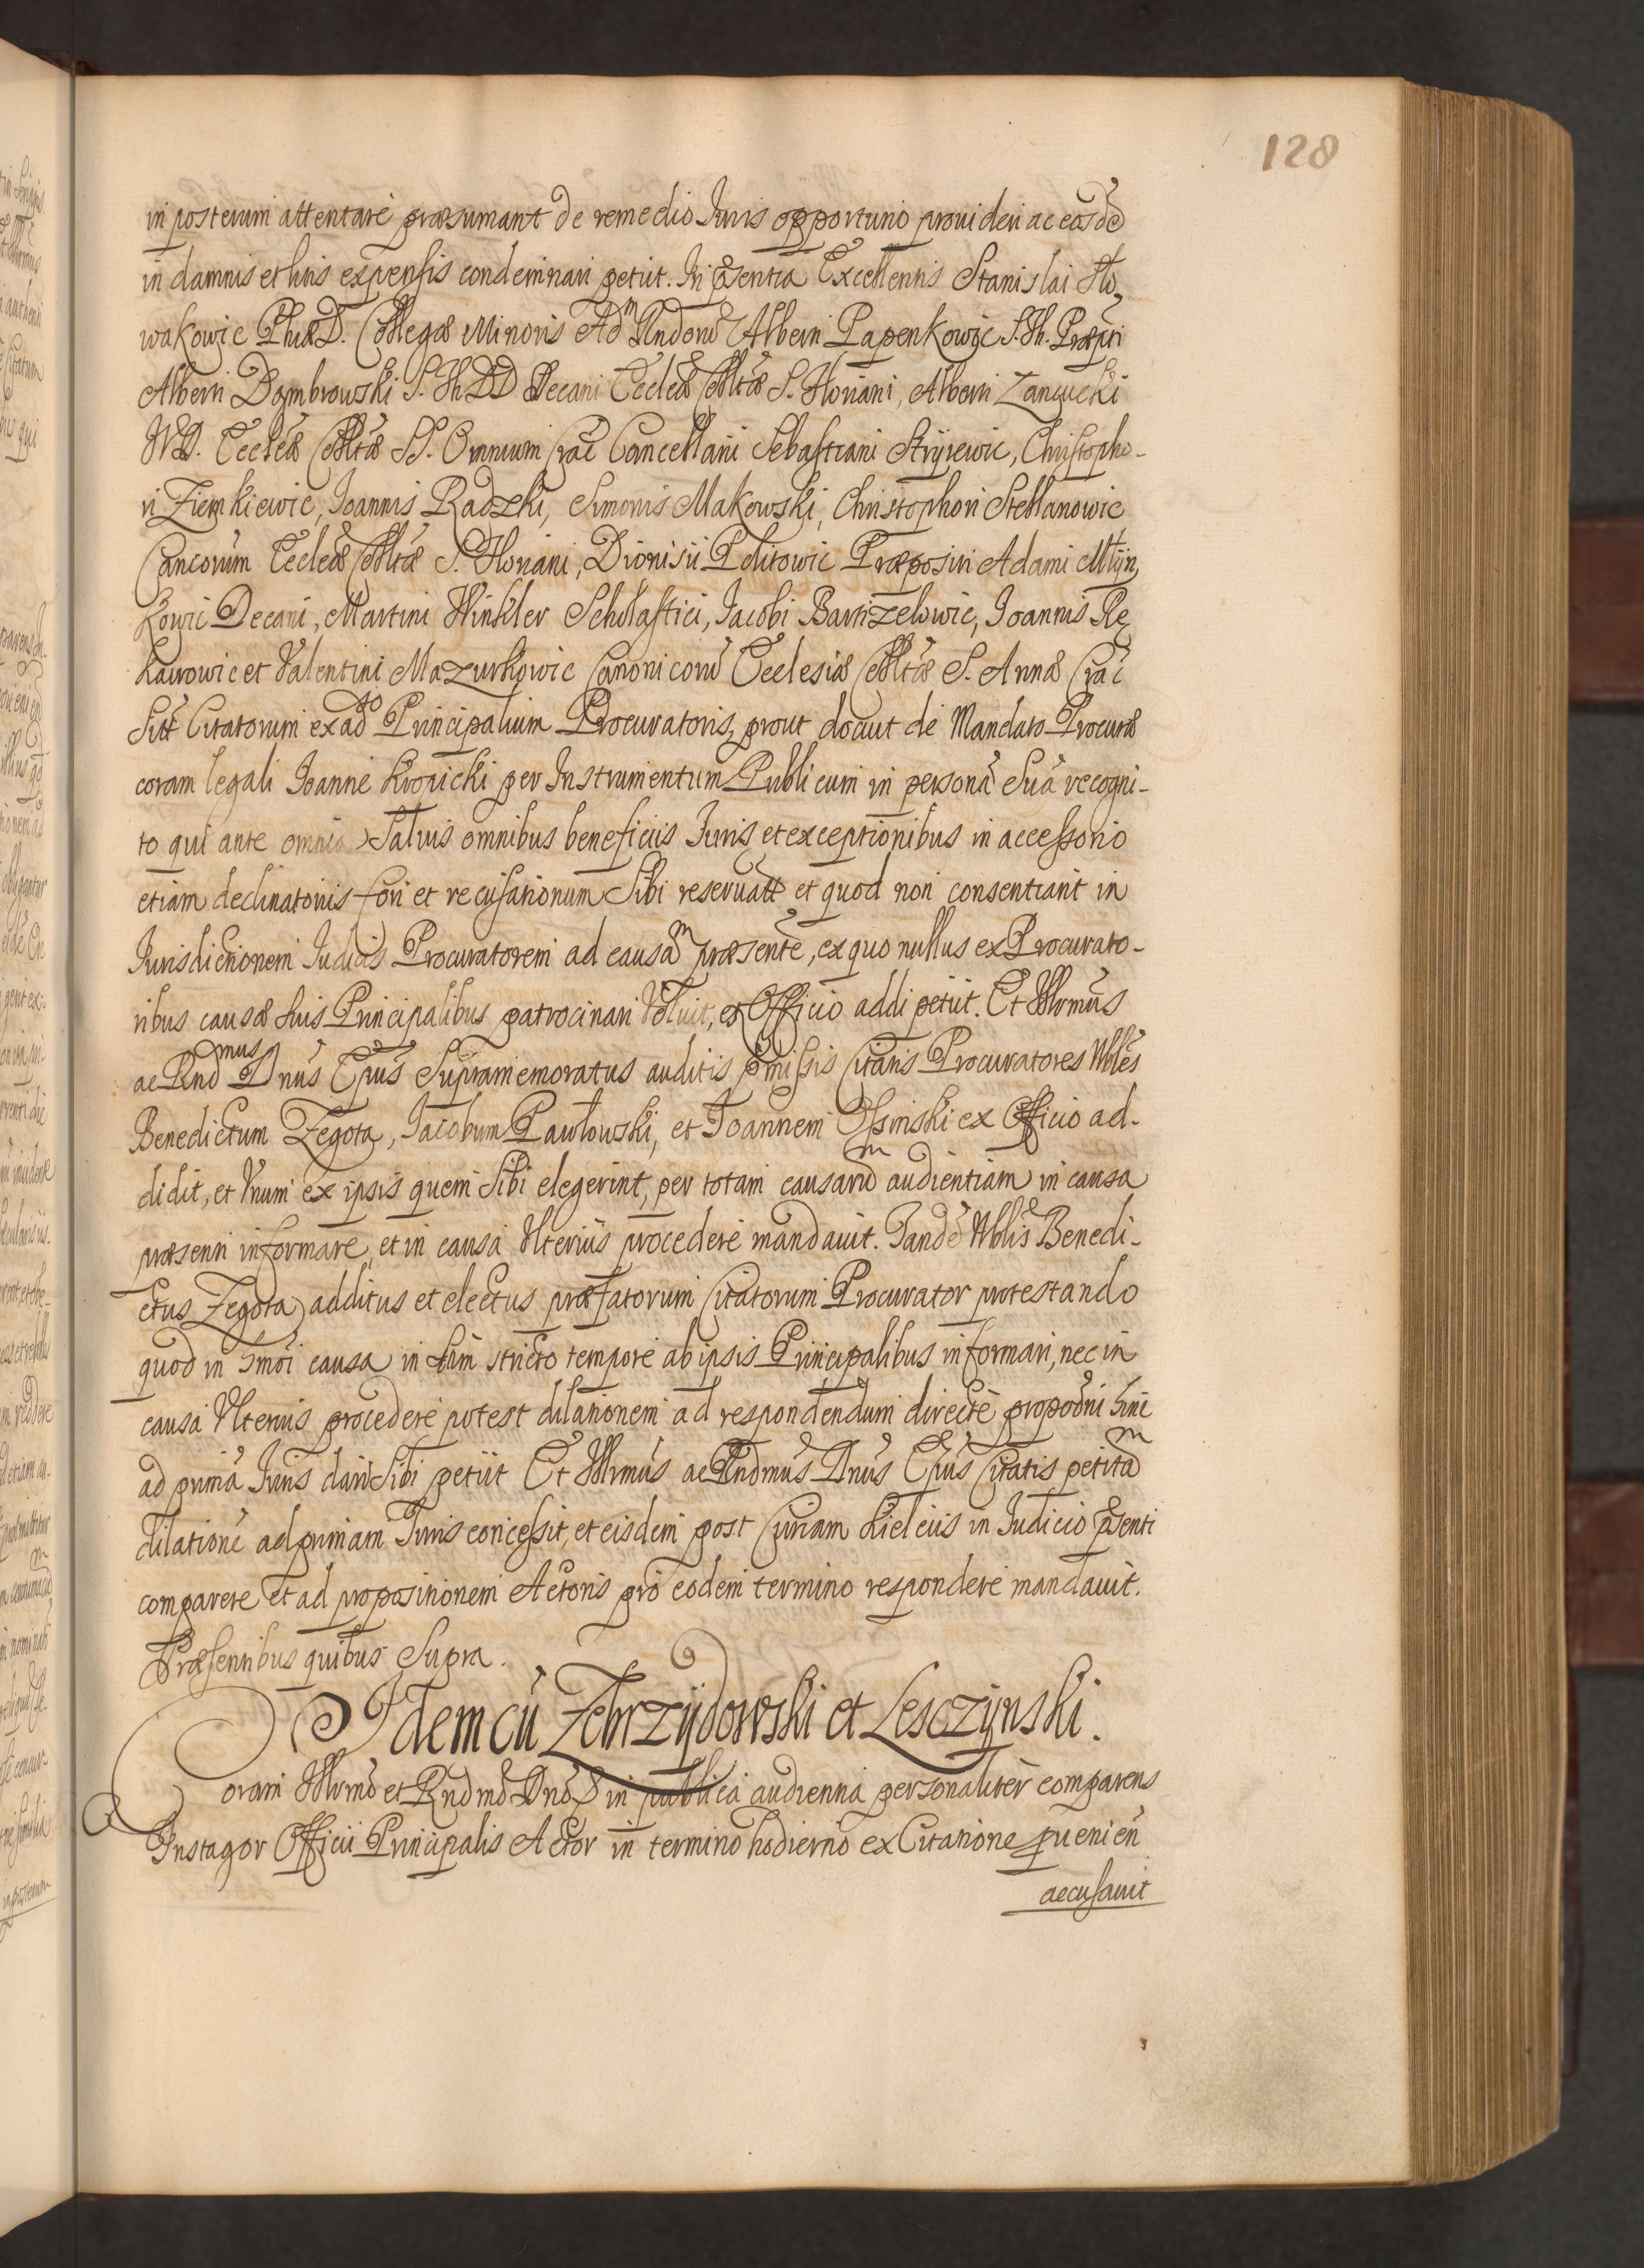 128
in posterum attentare præsumant de remedio Iuris opportuno prouideri ac eosdē
in damnis et litis expensis condemnari petiit. In pñsentia Excellentis Stanislai Slo,
wakowic Phiæ D. Collegæ Minoris Adm Rndorū Alberti Papenkowic S. Th. Præpti
Alberti Dąmbrowski S. Th. D D. Decani Eccleæ Colltæ S. Floriani, Alberti Lancucki
IVD. Eccleæ Colltæ SS. Omnium Crac̄ Cancellarii Sebastiani Stryiewic, Christopho-
ri Ziemkiewic, Ioannis Radzki, Simonis Makowski, Christophori Stettanowic
Cancorum Eccleæ Colltæ S. Floriani, Dionisii Politowic Præpositi Adami Młyn,
kowic Decani, Martini Winkler Scholastici, Iacobi Bartizelowic, Ioannis Rę,
kawowic et Valentini Mazurkowic Canonicorū Ecclesiæ Colltæ S. Annæ Crac̄
Citatorum ex adto Principalium Procuratoris, prout docuit de Mandato Procuræ
coram legali Ioanne Kropicki per Instrumentum Publicum in personā Suā recogni-
to qui ante omnia Saluis omnibus beneficiis Iuris et exceptionibus in accessorio
etiam declinatoriis fori et recusationum Sibi reseruatt et quod non consentiant in
Iurisdictionem Iudicis Procuratorem ad causām præsentē, ex quo nullus ex Procurato-
ribus causæ suis Principalibus patrocinari Voluit, ex Officio addi petiit. Et Illrmus
ac Rndmus Dnus Epus Supramemoratus auditis pmissis Citatis Procuratores Nbles
Benedictum Zegota, Iacobum Pawłowski, et Ioannem Ossinski ex Officio ad-
didit, et Vnum ex ipsis quem Sibi elegerint, per totam causarum audientiam in causa
præsenti informare, et in causa Vlterius procedere mandauit. Tandē Nblis Benedi-
ctus Zegota additus et electus præfatorum Citatorum Procurator protestando
quod in hmoi causa in tam stricto tempore ab ipsis Principalibus informari, nec in
causa Vlterius procedere potest dilationem ad respondendum directe propoōni hinc
ad primā Iuris dari Sibi petiit Et Illrmus ac Rndmus Dnus Epus Citatis petitam
dilationē ad primam Iuris concessit, et eisdem post Curiam Kielciis in Iudicio pñsenti
comparere et ad propositionem Actoris pro eodem termino respondere mandauit.
Præsentibus quibus Supra.
Idem cū Zebrzÿdowski et Lesczÿnski.
Coram Illrmo et Rndmo Dno in publica audientia personaliter comparens
Instagor Officii Principalis Actor in termino hodierno ex Citatione pueniēn
accusauit